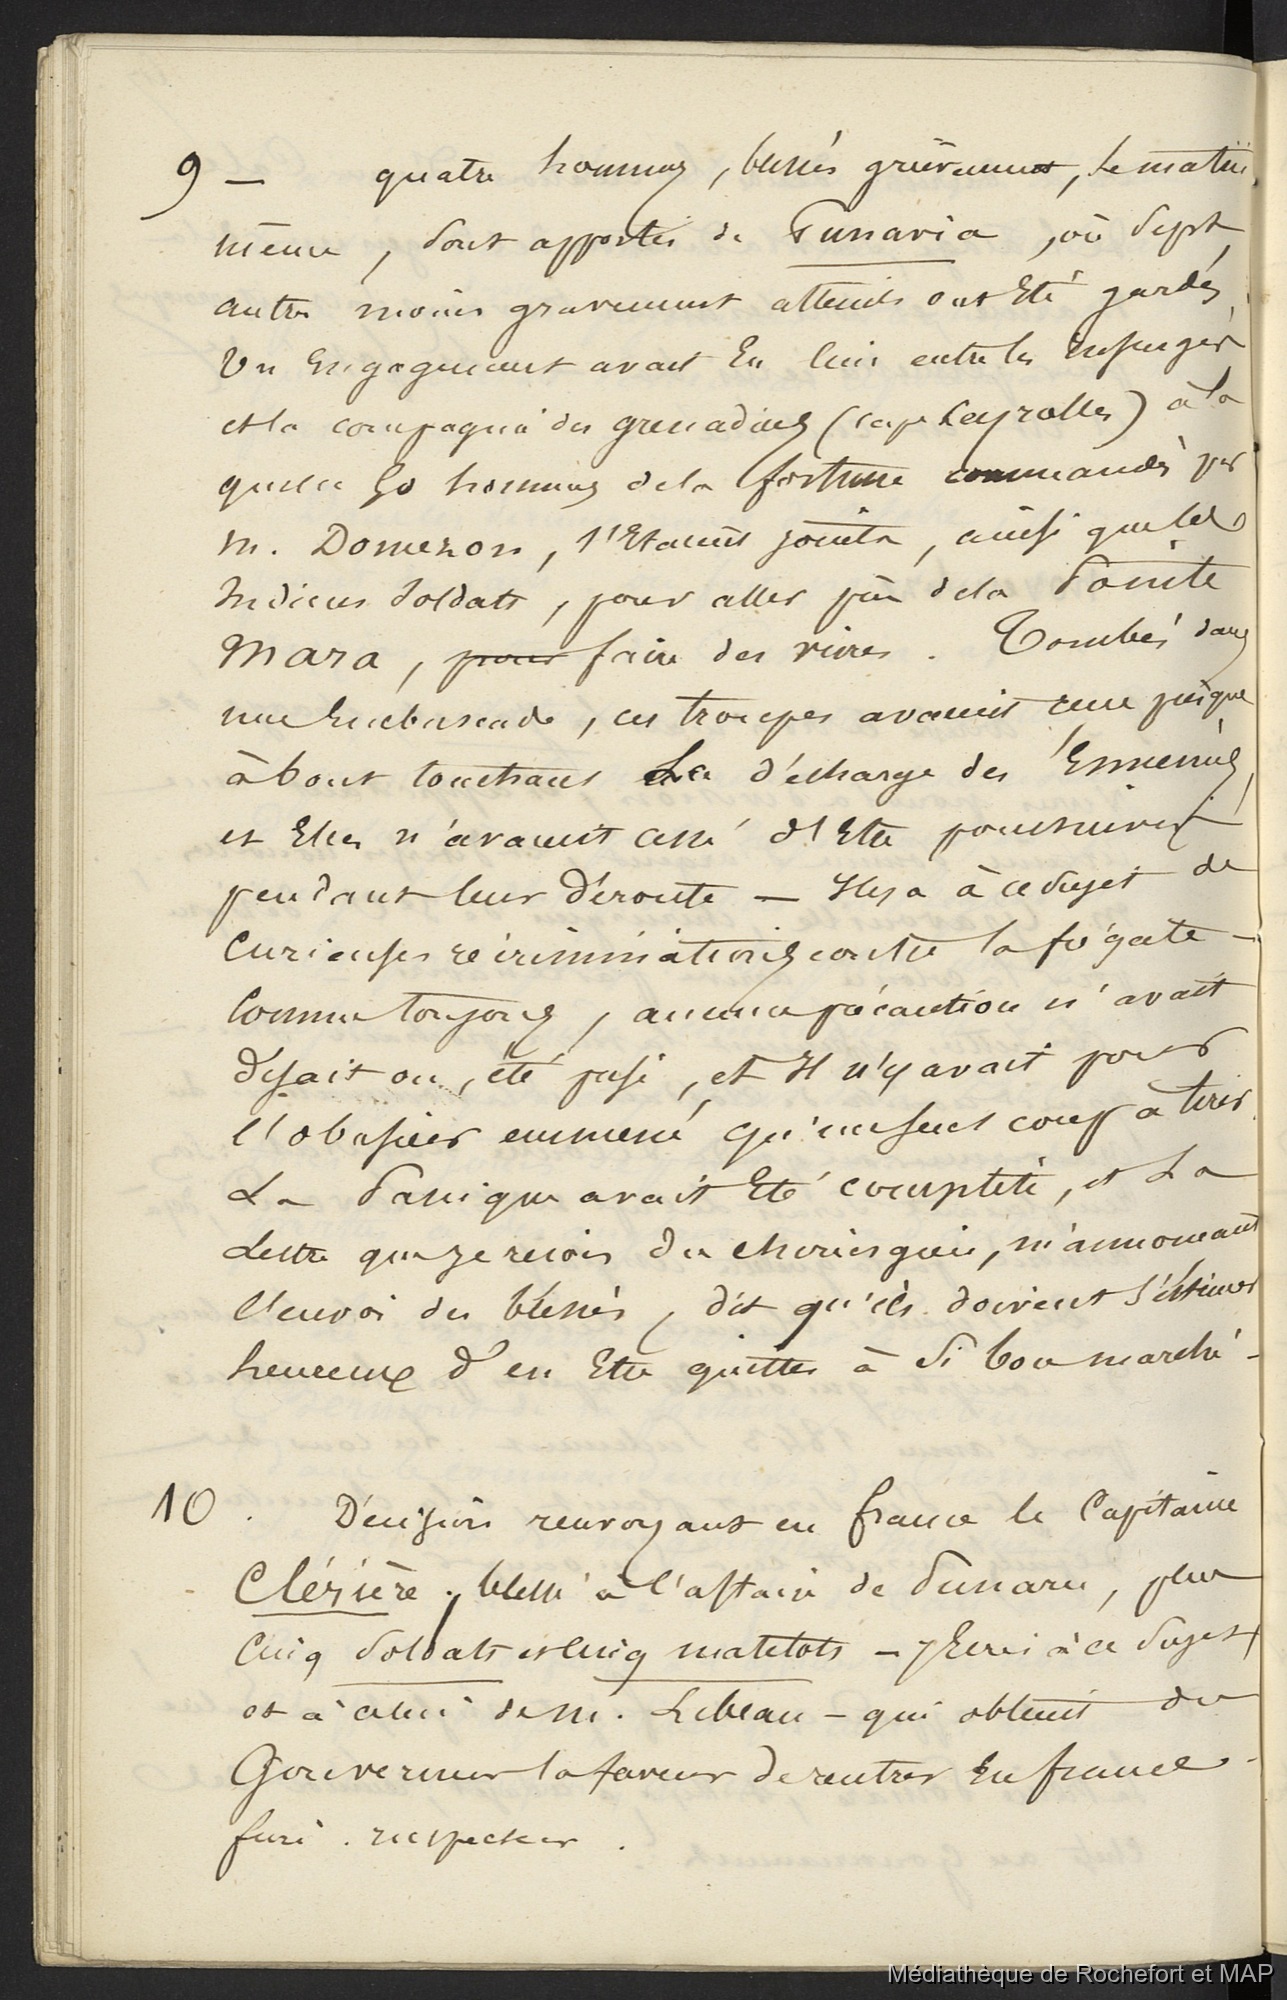 9 — quatre hommes, blessés grièvement, le matin
même, sont apportés de Punavia, où sept
autres moins gravement atteints ont été gardés,
Un Engagement avait Eu lieu entre les insurgés
et la compagnie des grenadiers (cap Leyrolles) à la
quelle 50 hommes de la fortune commandés par
M. Domezon, s'Etaient joints, ainsi que les
Indiens soldats, pour aller près de la Pointe
Mara, pour faire des vivres. Tombés dans
une Embuscade, ces troupes avaient reçu presque
à bout touchant La décharge des Ennemis,
et Elles n'avaient cessé d'Etre poursuivies
pendant leur déroute — Il y a à ce sujet de
Curieuses récriminations contre la frégate —
Comme toujours, aucune précaution n'avait
disait on, été prise, et Il n'y avait pour
l'obusier emmené qu'un seul coup à tirer
La Panique avait Eté complète, et La
Lettre que je reçois du chirurgien, m'annonçant
l'envoi des blessés, dit qu'ils doivent s'estimer
heureux d'en Etre quittes à si bon marché —
10. Décision renvoyant en france le Capitaine
Clézière, blessé à l'affaire de Punaru, plus
Cinq soldats et Cinq matelots — à ce sujet
et à celui de M. Lebeau — qui obtient du
Gouverneur la faveur de rentrer En france